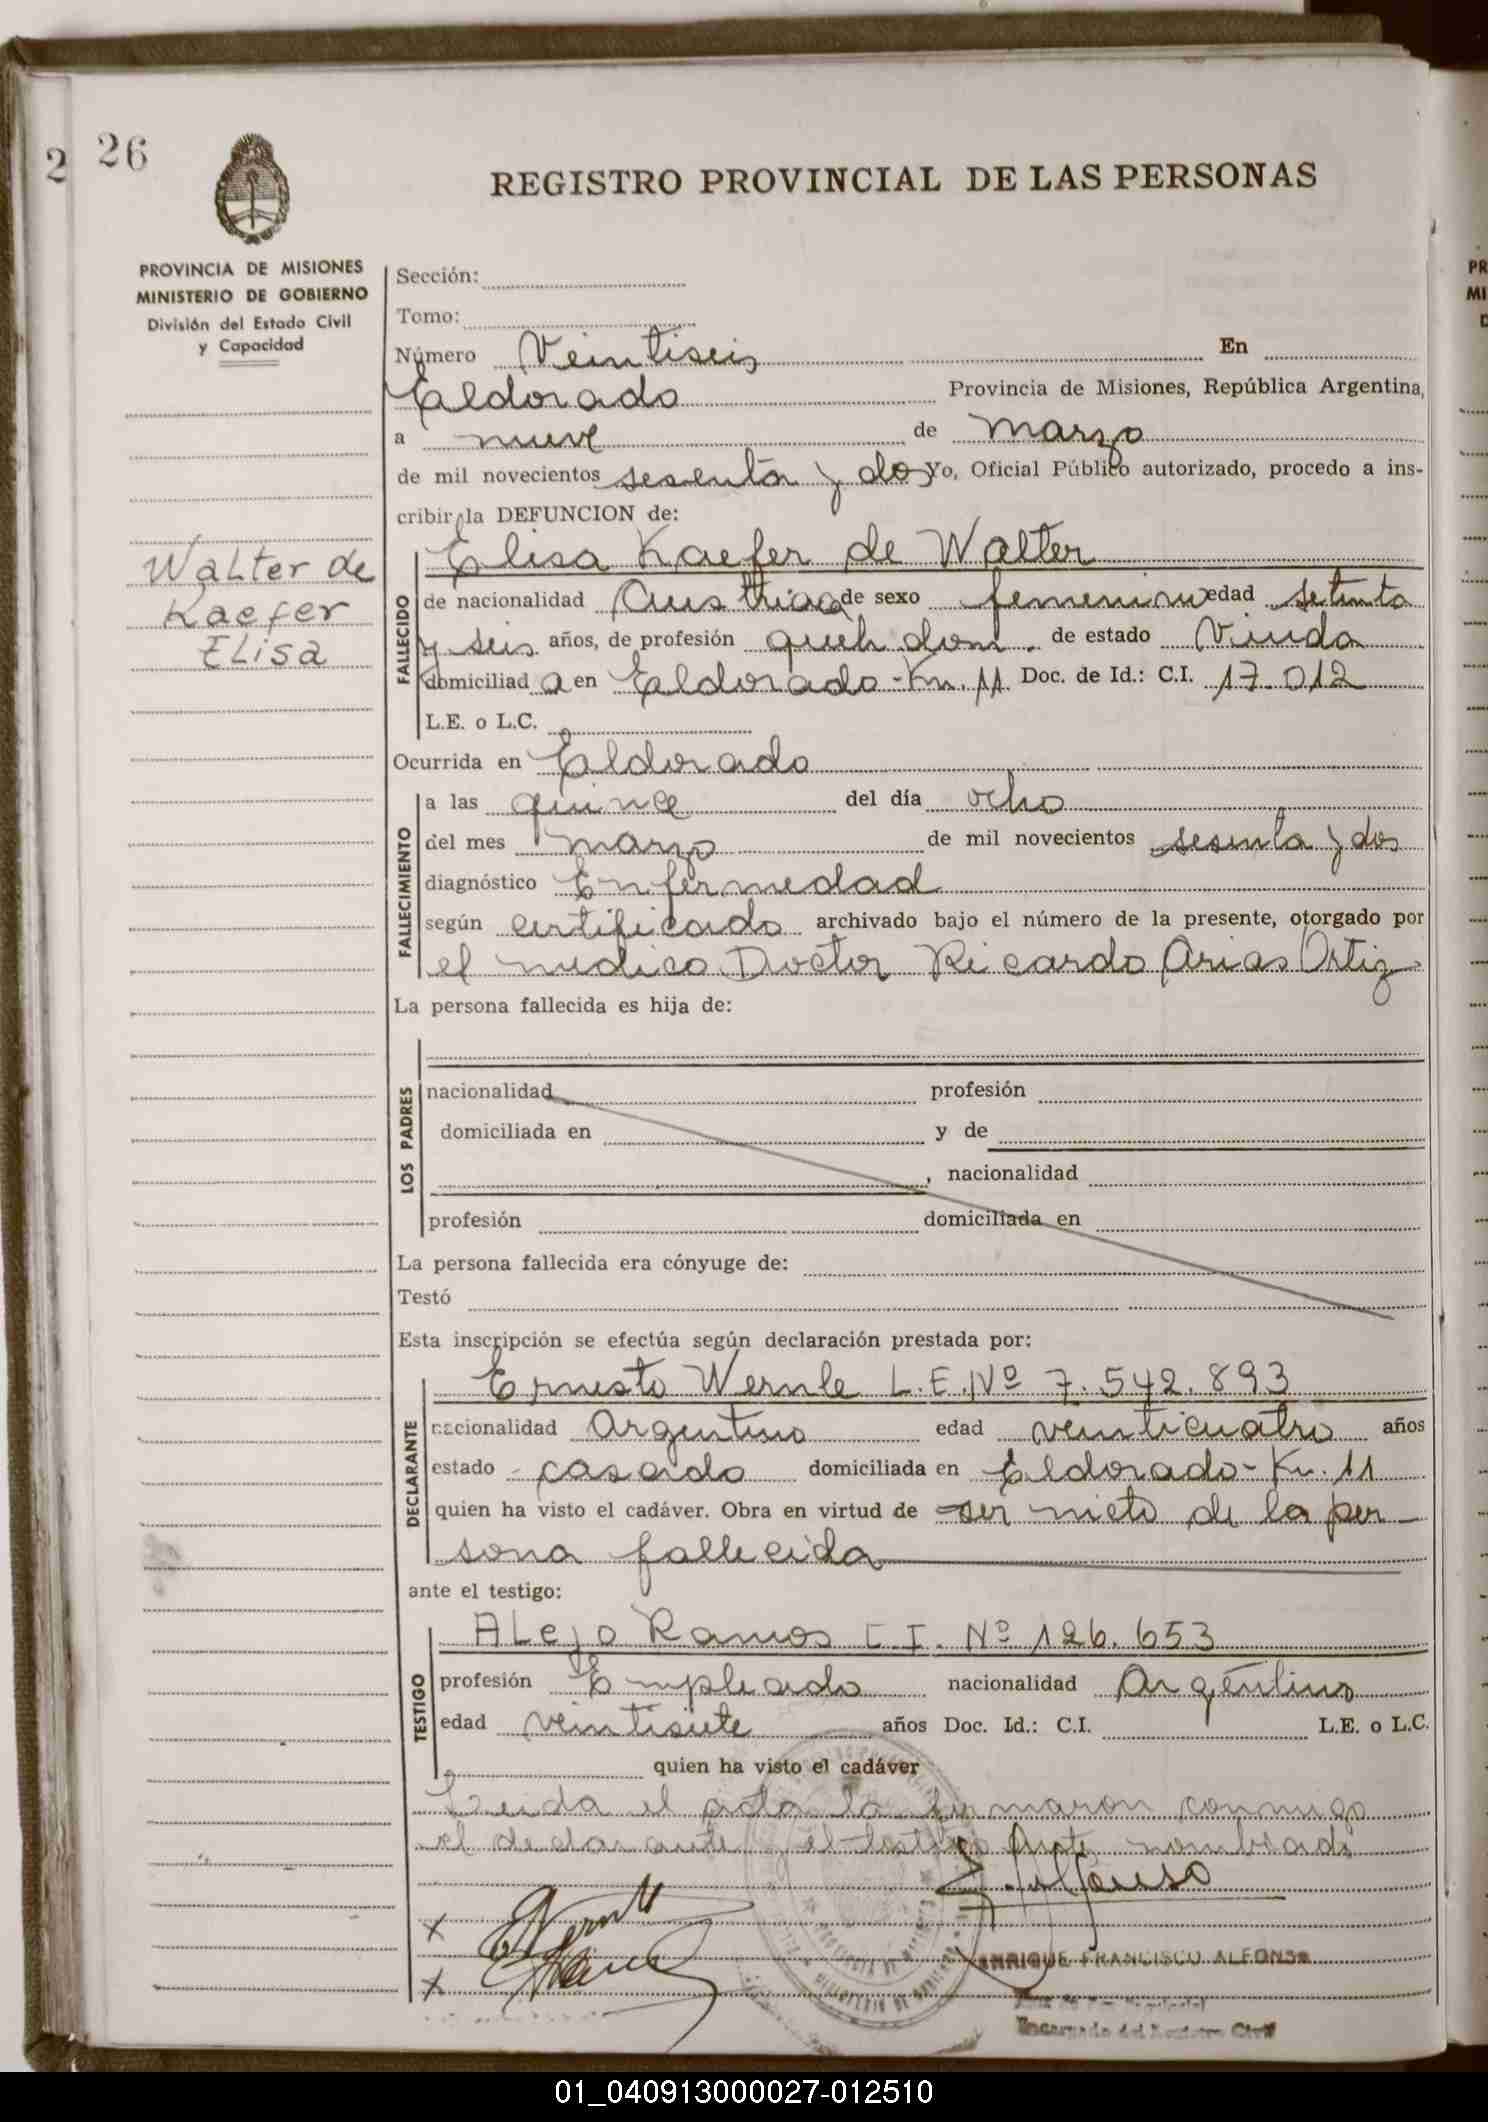 2 26
REGISTRO PROVINCIAL DE LAS PERSONAS
PROVINCIA DE MISIONES
MINISTERIO DE GOBIERNO
División del Estado Civil
y Capacidad
Walter de
Kaefer
Elisa
Sección:
Tomo:
Número Veintiseis En
Eldorado Provincia de Misiones, República Argentina,
a nueve de marzo
de mil novecientos sesenta y dos Yo, Oficial Público autorizado, procedo a ins-
cribir la DEFUNCION de:
FALLECIDO
Elisa Kaefer de Walter
de nacionalidad Austriaca de sexo femenino edad setenta
y seis años, de profesión queh dom. de estado Viuda
domiciliad a en Eldorado-Km. 11 Doc. de Id.: C.I. 17.012
L.E. o L.C.
Ocurrida en Eldorado
FALLECIMIENTO
a las quince del día ocho
del mes marzo de mil novecientos sesenta y dos
diagnóstico Enfermedad
según certificado archivado bajo el número de la presente, otorgado por
el medico Doctor Ricardo Arias Ortiz
La persona fallecida es hija de:
LOS PADRES
nacionalidad profesión
domiciliada en y de
, nacionalidad
profesión domiciliada en
La persona fallecida era cónyuge de:
Testó
Esta inscripción se efectúa según declaración prestada por:
DECLARANTE
Ernesto Wernle L.E. Nº 7.542.893
nacionalidad Argentino edad veinticuatro años
estado casado domiciliada en Eldorado-Km. 11
quien ha visto el cadáver. Obra en virtud de ser nieto de la per-
sona fallecida
ante el testigo:
TESTIGO
Alejo Ramos C.I. Nº 126.653
profesión Empleado nacionalidad Argentino
edad veintisiete años Doc. Id.: C.I. L.E. o L.C.
quien ha visto el cadáver
Leida el acta la firmaron conmigo
el declarante y el testigo ante nombrado
E. Alfonso
X E Wernle
X
ENRIQUE FRANCISCO ALFONSO
Encargado del Registro Civil
PROVINCIA DE MISIONES
MINISTERIO DE GOBIERNO
01_040913000027-012510